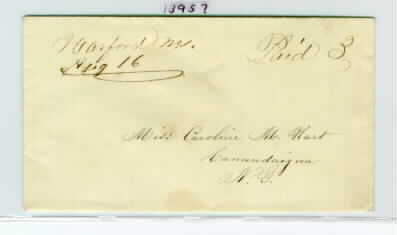 13957
Paid 3
Aug 16
Miss Caroline M. Hart
Canandaigua
N.Y.